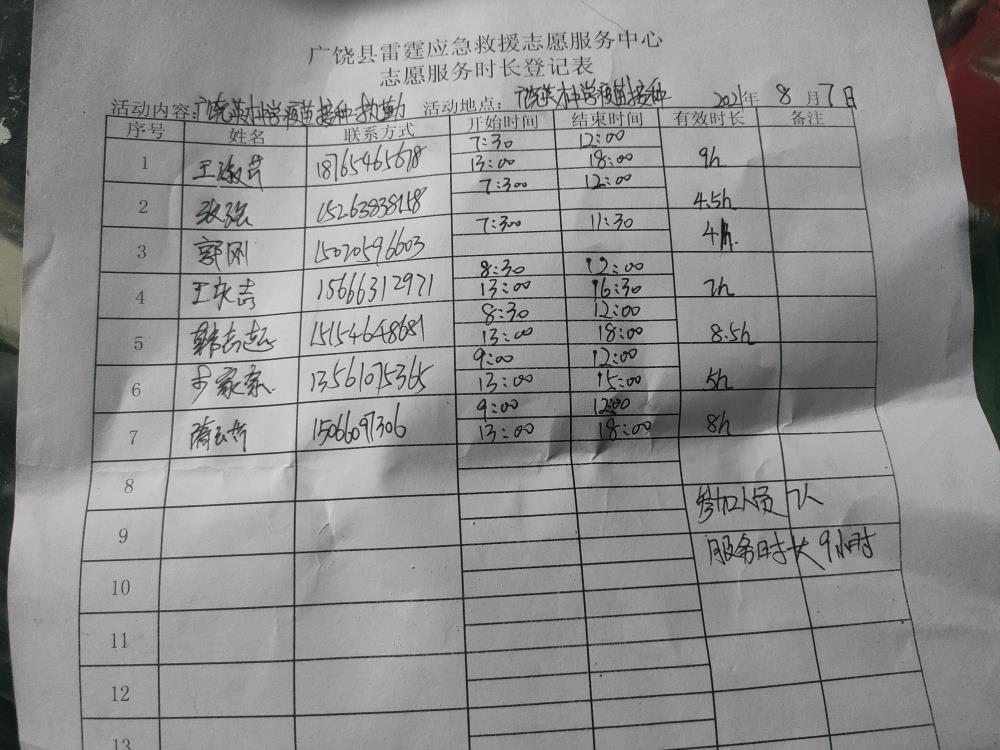 广饶县雷霆应急救援志愿服务中心
志愿服务时长登记表
活动内容:广饶英才中学疫苗接种执勤 活动地点:广饶英才中学疫苗接种 2021年 8月7日
序号 姓名 联系方式 开始时间 结束时间 有效时长 备注
7:30 12:00
1 王淑芹 18765465678 13:00 18:00 9h
7:300 12:00
2 张强 15263838158 4.5h
7:300 11:30
3 郭刚 15020596603 4h.
8:30 12:00
4 王永吉 15666312971 13:00 16:30 7h
8:30 12:00
5 韩志 15154648681 13:00 18:00 8.5h
9:00 12:00
6 家家 13561075365 13:00 15:00 5h
9:00 12:00
7 15066097306 13:00 18:00 8h
8
参加人员 7人
9
服务时长 9小时
10
11
12
13